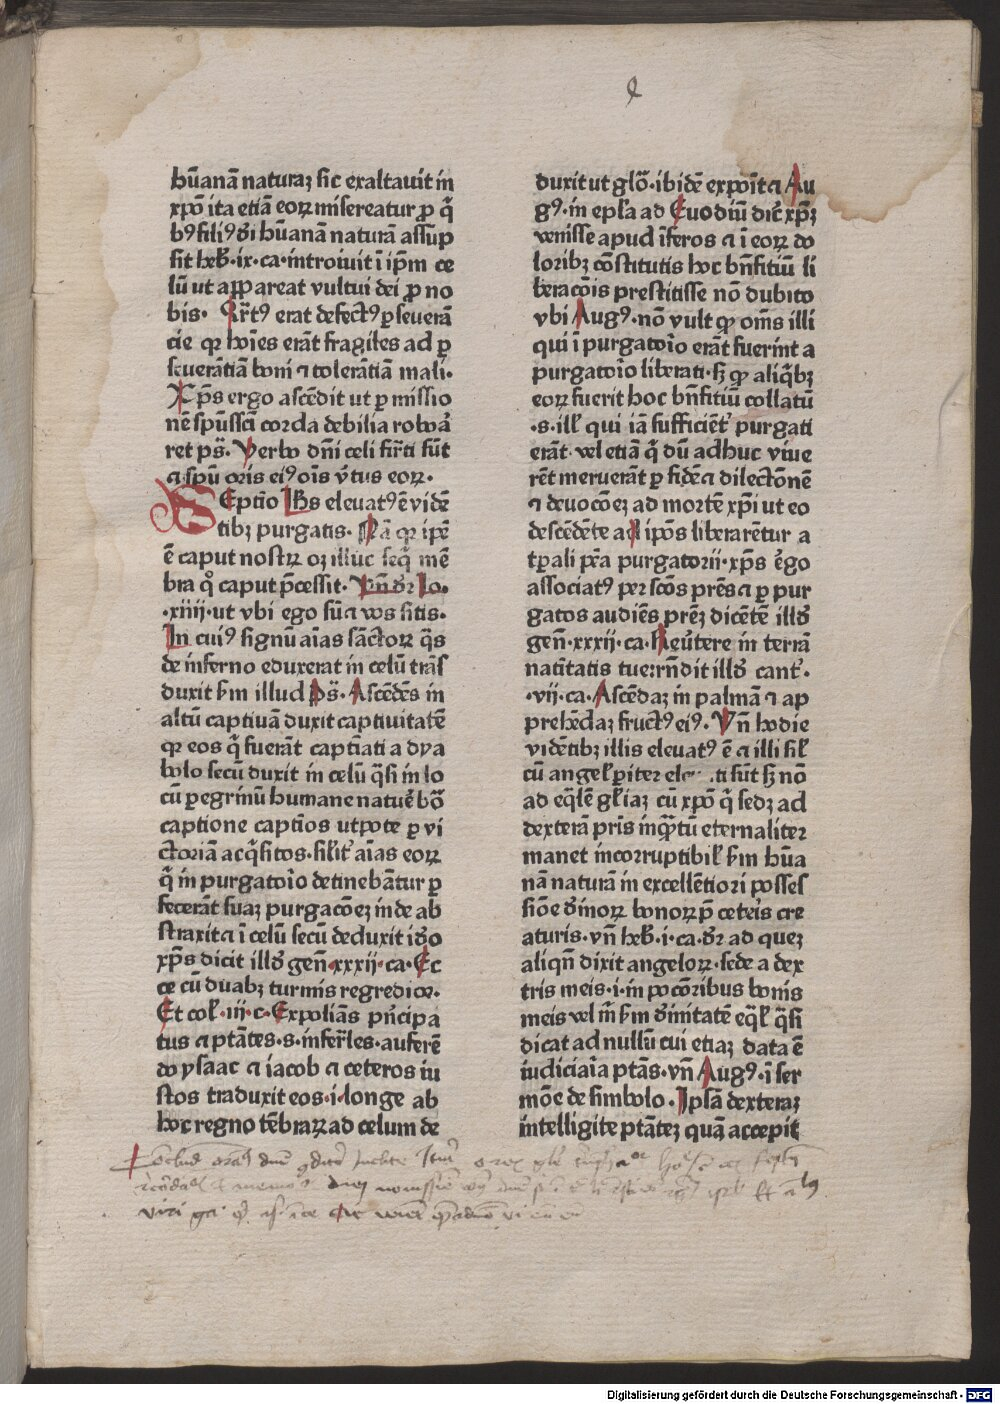 hūanā naturaꝫ sic exaltauit in
xpō ita etiā eoꝝ misereatur ꝓ q̄
bꝰ filiꝰ dī hūanā naturā assūp
sit heb̄·ix·ca·introiuit ī ip̄m ce
lū ut apꝑareat vultui dei ꝓ no
bis· Q̄rtꝰ erat defectꝰ ꝑseuerā
cie qꝛ hoīes erāt fragiles ad ꝑ
seuerātiā boni ⁊ tolerātiā mali·
Xp̄s ergo ascēdit ut ꝑ missio
nē sp̄ussci corda debilia robora
ret ps̄· Verbo dn̄i celi firti sūt
⁊ spū oris eiꝰ oīs v̄tus eoꝝ·
Septīo Ihs eleuatꝰ ē vidē
tibꝫ purgatis· Nā qꝛ ipē
ē caput nostꝝ oꝫ illuc seq̄ mē
bra qͦ caput p̄cessit· Vn̄ dr̄ Io·
·xiiij·ut vbi ego sū ⁊ vos sitis·
In cuiꝰ signū aīas sāctoꝝ q̄s
de inferno eduxerat in celū trās
duxit s̄m illud ps̄· Ascēdēs in
altū captiuā duxit captiuitatē
qꝛ eos q̄ fuerāt captīati a dya
bolo secū duxit in celū q̄si in lo
cū ꝑegrinū humane nature bōa
captione captīos utpote ꝑ vi
ctoriā acq̄sitos·silit̄ aīas eoꝝ
q̄ in purgatoīo detinebātur ꝑ
fecerāt suaꝫ purgacōeꝫ inde ab
straxit ⁊ ī celū secū deduxit idō
xp̄s dicit illd̄ gen̄ xxxij·ca·Ec
ce cū duabꝫ turmis regredior·
Et col̄·iij·c·Expoliās pn̄cipa
tus ⁊ ptātes·s·infer̄les·auferē
do ysaac ⁊ iacob ⁊ ceteros iu
stos traduxit eos·i·longe ab
hoc regno tēbraꝝ ad celum de
duxit ut glō·ibidē expoīt ⁊ Au
gꝰ·in epl̄a ad Euodiū dic̄ xp̄ꝫ
venisse apud īferos ⁊ ī eoꝝ do
loribꝫ cōstitutis hoc bn̄fitiū li
beracōis prestitisse nō dubito
vbi Augꝰ·nō vult ꝙ om̄s illi
qui ī purgatoīo erāt fuerint a
purgatoīo liberati·sꝫ ꝙ aliq̄bꝫ
eoꝝ fuerit hoc bn̄fitiū collatū
·s·ill̄ qui iā sufficiēt̄ purgati
erāt·vel etiā q̄ dū adhuc viue
rēt meruerāt ꝑ fidē ⁊ dilectōnē
⁊ deuocōeꝫ ad mortē xp̄i ut eo
descēdēte ad ipōs liberarētur a
tꝑali pēa purgatorij·xp̄s ēgo
associatꝰ per scōs prēs ⁊ ꝑ pur
gatos audiēs prēꝫ dicētē illd̄
gen̄·xxxij·ca·Reūtere in terrā
natītatis tue:rn̄dit illd̄ cant̄·
·vij·ca·Ascēdaꝫ in palmā ⁊ ap
prehēdaꝫ fructꝰ eiꝰ· Vn̄ hodie
vidētibꝫ illis eleuatꝰ ē ⁊ illi sil̄
cū angel̄ ꝑiter ele ti sūt sꝫ nō
ad eq̄lē gl̄iaꝫ cū xpō q̄ sedꝫ ad
dexterā pris inqͣtū eternaliter
manet incorruptibil̄ s̄m hūa
nā naturā in excellētiori posses
siōe d̄inoꝝ bonoꝝ p̄ ceteis cre
aturis·vn̄ heb̄·i·ca·dr̄ ad queꝫ
aliqn̄ dixit angeloꝝ·sede a dex
tris meis·i·in pocōribus bonis
meis vel m̄ s̄m d̄initatē eq̄l̄ q̄si
dicat ad nullū cui etiaꝫ data ē
iudiciaīa ptās·vn̄ Augꝰ·ī ser
mōe de simbolo· Ipsā dexteraꝫ
intelligite ptāteꝫ quā accepit